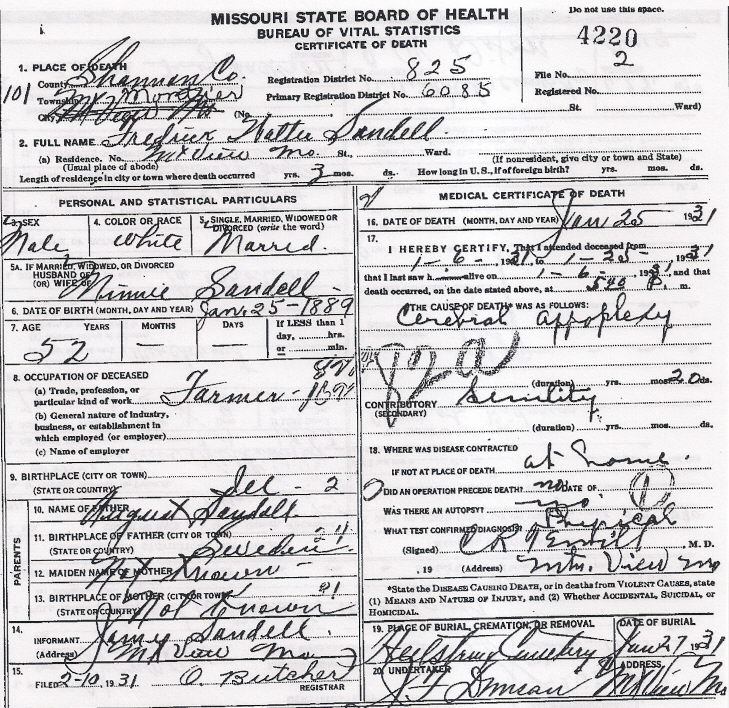 Do not use this space.
MISSOURI STATE BOARD OF HEALTH
BUREAU OF VITAL STATISTICS
CERTIFICATE OF DEATH
4220
1. PLACE OF DEATH
County Shannon Co.
Registration District No. 825
File No. 2
101
Township
Primary Registration District No. 6085
Registered No.
City Mt View Mo (No. St. Ward)
2. FULL NAME Fredrick Sandell
(a) Residence. No. Mt View Mo. St., Ward.
(Usual place of abode) (If nonresident, give city or town and State)
Length of residence in city or town where death occurred yrs. 3 mos. ds. How long in U.S., if of foreign birth? yrs. mos. ds.
PERSONAL AND STATISTICAL PARTICULARS
3. SEX
Male
4. COLOR OR RACE
White
5. SINGLE, MARRIED, WIDOWED OR
DIVORCED (write the word)
Married.
5A. IF MARRIED, WIDOWED, OR DIVORCED
HUSBAND OF
(OR) WIFE OF Minnie Sandell
6. DATE OF BIRTH (MONTH, DAY AND YEAR) Jan. 25 - 1889
7. AGE YEARS MONTHS DAYS If LESS than 1
day, ....hrs.
or ....min.
52 — —
8. OCCUPATION OF DECEASED
(a) Trade, profession, or
particular kind of work Farmer
(b) General nature of industry,
business, or establishment in
which employed (or employer)
(c) Name of employer
9. BIRTHPLACE (CITY OR TOWN)
(STATE OR COUNTRY) Ill - 2
PARENTS
10. NAME OF FATHER August Sandell
11. BIRTHPLACE OF FATHER (CITY OR TOWN)
(STATE OR COUNTRY) Sweden
12. MAIDEN NAME OF MOTHER Not Known
13. BIRTHPLACE OF MOTHER (CITY OR TOWN)
(STATE OR COUNTRY) Not Known
14.
INFORMANT Sandell
(Address) Mt View Mo
15.
FILED 2-10, 1931 O. Butcher
REGISTRAR
MEDICAL CERTIFICATE OF DEATH
16. DATE OF DEATH (MONTH, DAY AND YEAR) Jan 25 1931
17.
I HEREBY CERTIFY, That I attended deceased from
1-6-, 1931, to 1-25-, 1931
that I last saw h alive on 1-6-, 1931, and that
death occurred, on the date stated above, at 540 P. m.
THE CAUSE OF DEATH* WAS AS FOLLOWS:
Cerebral Appoplexy
82a
(duration) yrs. mos. 20 ds.
CONTRIBUTORY Senility
(SECONDARY)
(duration) yrs. mos. ds.
18. WHERE WAS DISEASE CONTRACTED
IF NOT AT PLACE OF DEATH at home.
DID AN OPERATION PRECEDE DEATH? no DATE OF
WAS THERE AN AUTOPSY? no.
WHAT TEST CONFIRMED DIAGNOSIS? Physical
(Signed) M. D.
, 19 (Address) Mtn. View Mo
*State the DISEASE CAUSING DEATH, or in deaths from VIOLENT CAUSES, state
(1) MEANS AND NATURE OF INJURY, and (2) Whether ACCIDENTAL, SUICIDAL, or
HOMICIDAL.
19. PLACE OF BURIAL, CREMATION, OR REMOVAL
Cemetery
DATE OF BURIAL
Jan 27 1931
20. UNDERTAKER
Duncan
ADDRESS
Mt View Mo